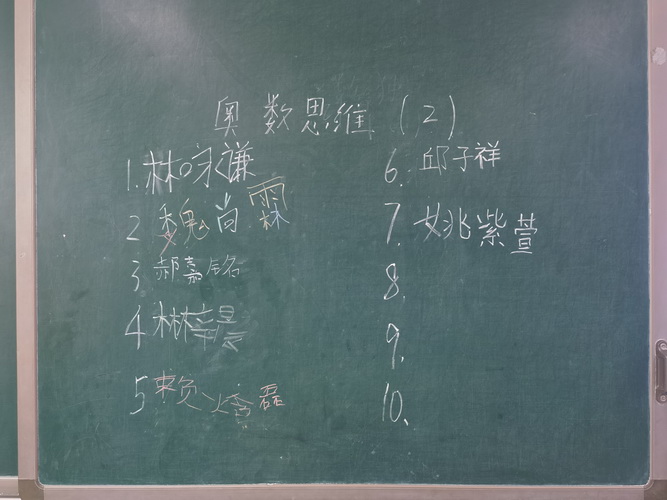 奥数思维(2)
1.林咏谦
2 魏尚霖
3 郝嘉铭
4 林梓晨
5 赖焓磊
6.邱子祥
7.姚紫萱
8.
9.
10.